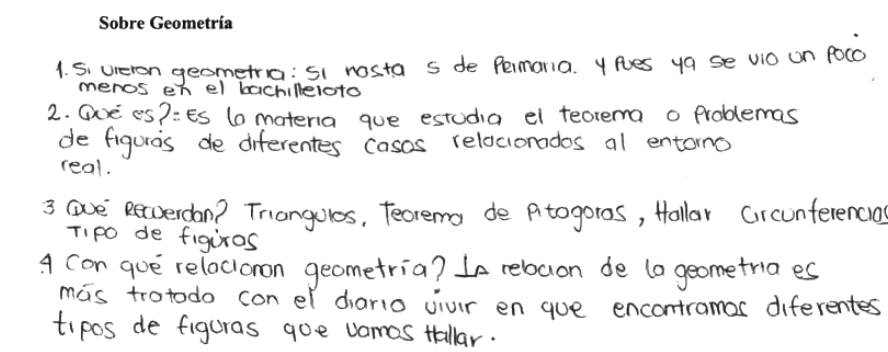 Sobre Geometría
1. Si vieron geometria: Si hasta 5 de Primaria. y pues ya se vio un poco
menos en el bachillerato
2. Qué es?: Es la materia que estudia el teorema o problemas
de figuras de diferentes casos relacionados al entorno
real.
3 Qué Recuerdan? Triangulos, Teorema de Pitagoras, Hallar circunferencias
Tipo de figuras
4 Con qué relacionan geometría? La relacion de la geometria es
más tratado con el diario vivir en que encontramos diferentes
tipos de figuras que vamos Hallar.